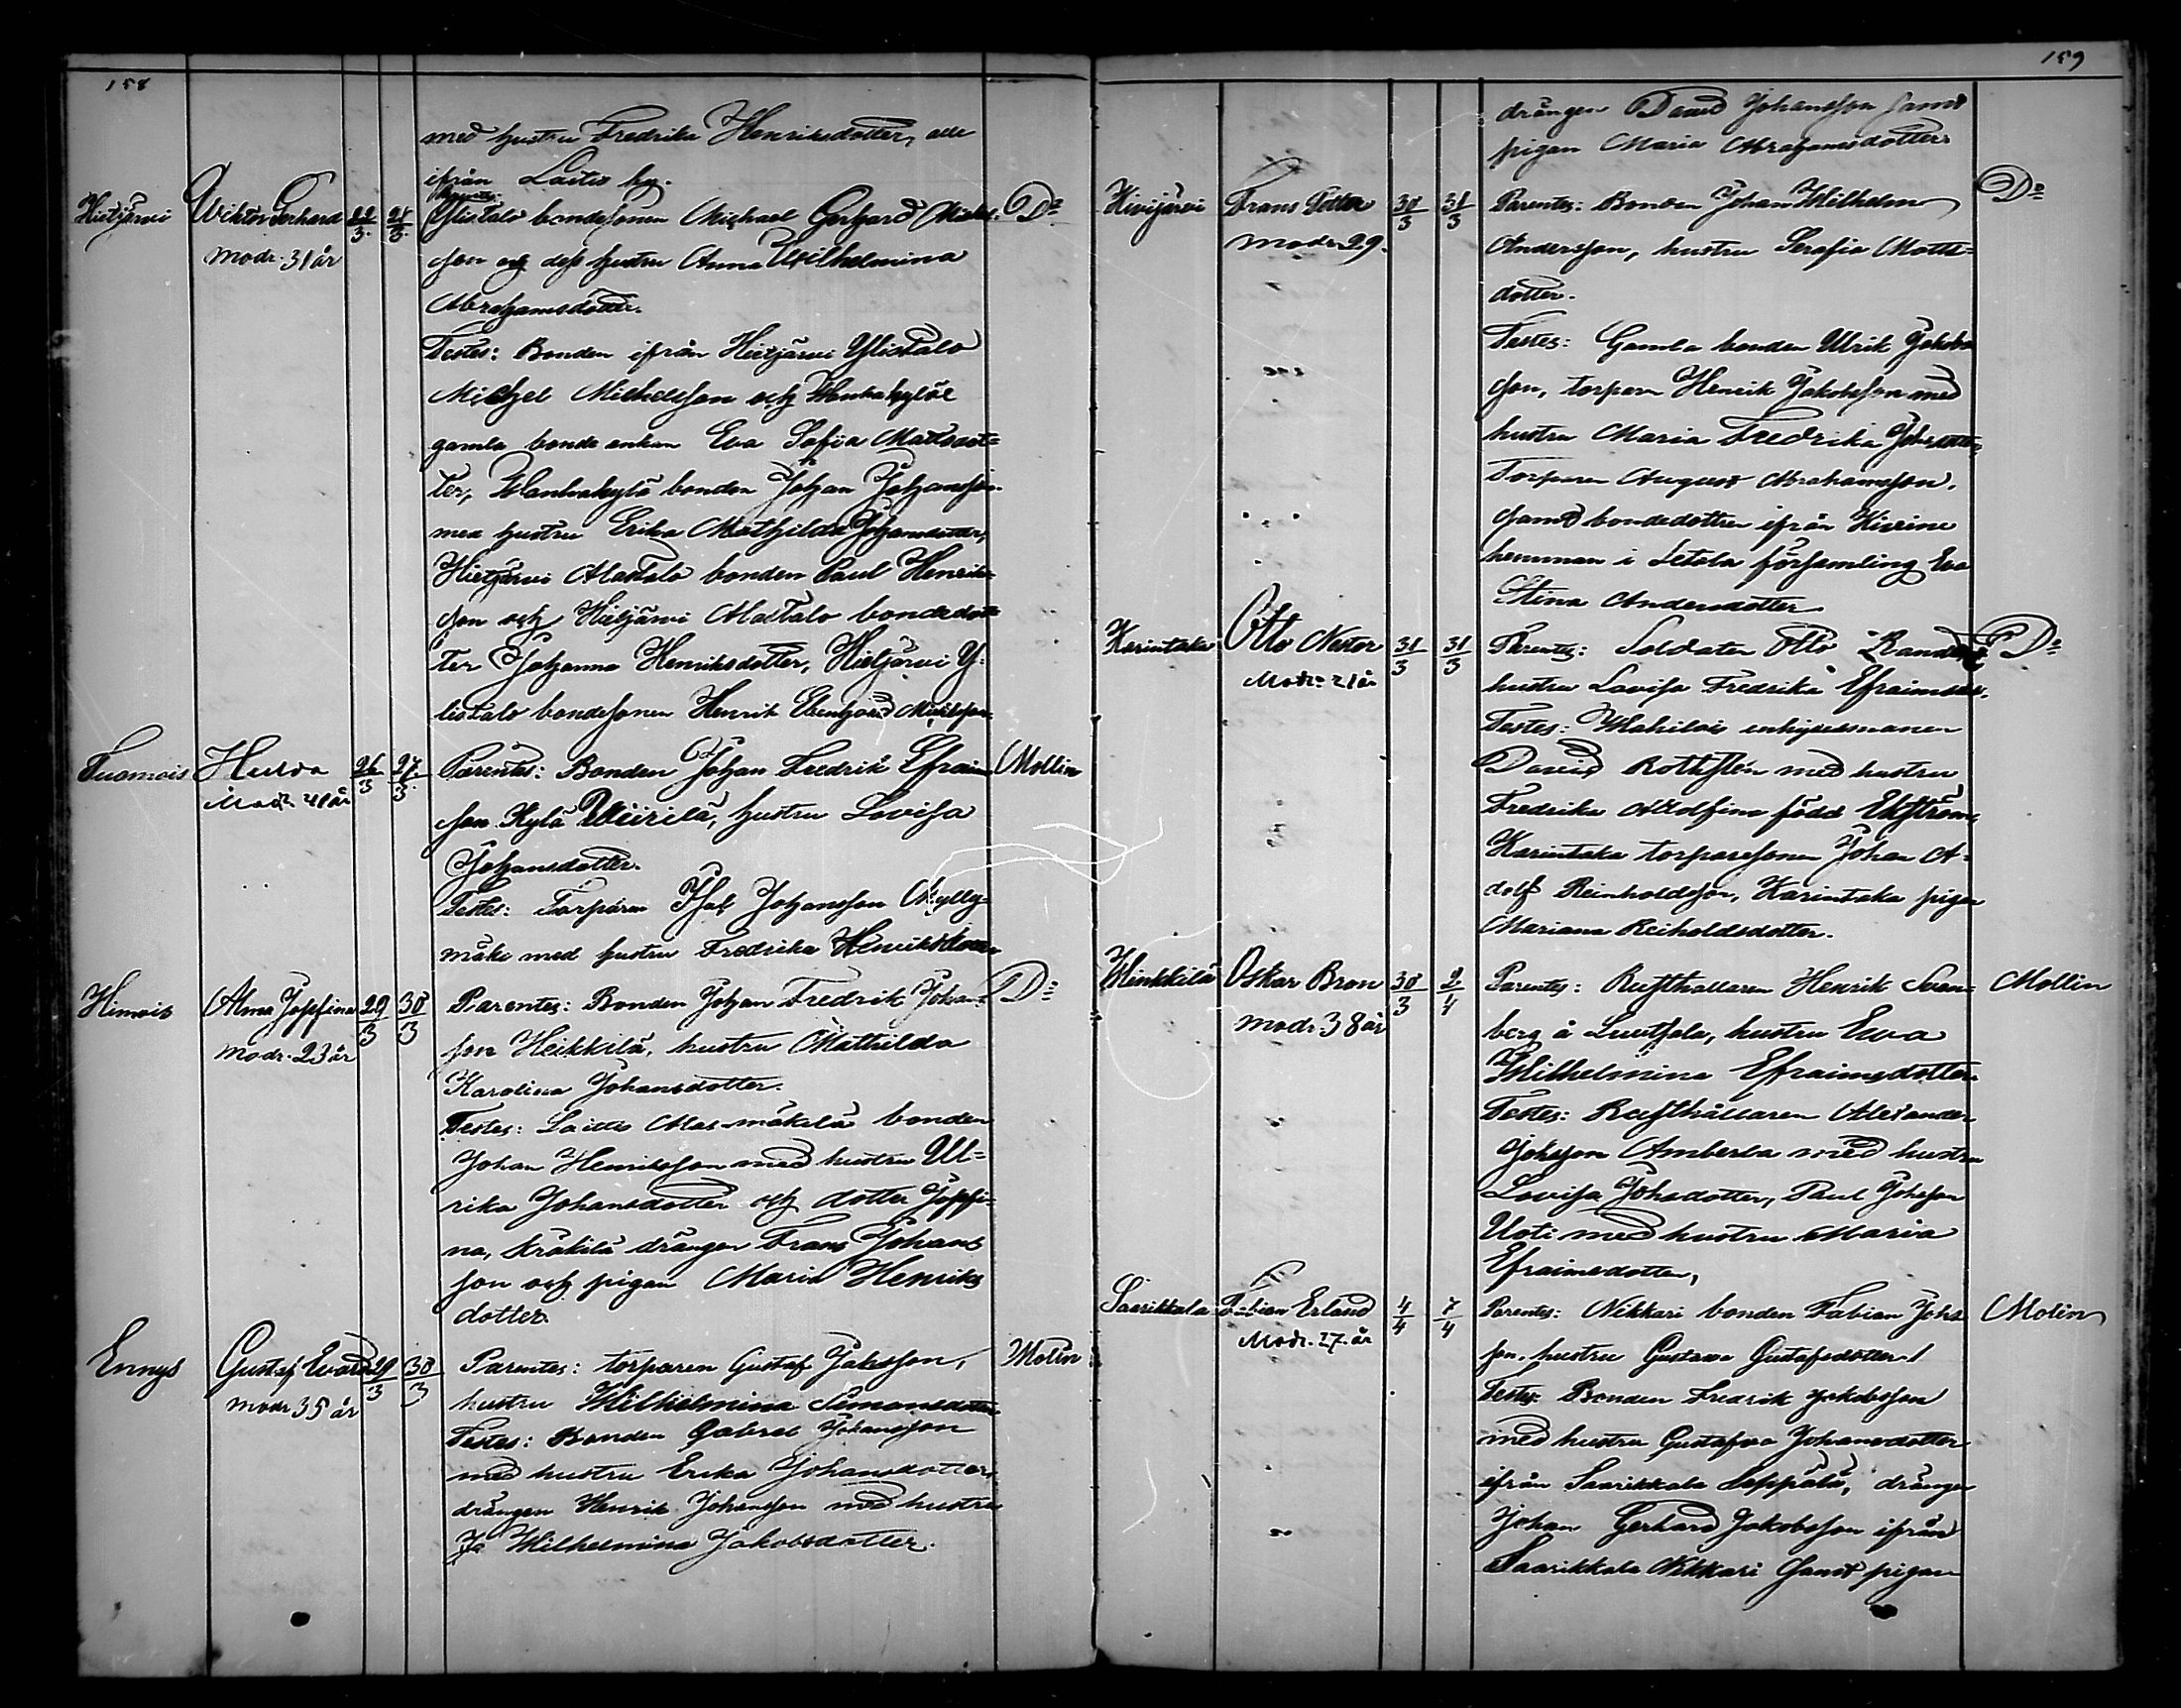 158
med hustru Fredrika Henriksdotter, alle
ifrån Laitis by.
Hietjärvi Wiktor Gerhard 22/3. 24/3. Ylistalo bondesonen Michael Gerhard Michels- Do
Modr. 31 år son och dess hustru Anna Wilhelmina
Abrahamsdotter.
Testes: Bonden ifrån Hietjärvi Ylistalo
Michel Michelsson och
gamla bonde enkan Eva Sofia Mattsdot=
ter, bonden Johan Johansson
med hustru Erika Mathilda Johansdotter,
Hietjärvi Alastalo bonden Paul Henriks-
son och Hietjärvi Alastalo bondedot-
ter Johanna Henriksdotter, Hietjärvi Y-
listalo bondesonen Henrik Michelsson
Tuomois Hulda 26/3 27/3. Parentes: Bonden Johan Fredrik Efraim Mollin
Modr. 41 år son Kylä hustru Lovisa
Johansdotter.
Testes: Torparen Isak Johansson Mylly-
mäki med hustru Fredrika Henriksdotter
Himois Alma Josefina 29/3 30/3 Parentes: Bonden Johan Fredrik Johan- Do
Modr. 23 år son Heikkilä, hustru Mathilda
Karolina Johansdotter.
Testes: Laitis Alas-mäkelä bonden
Johan Henriksson med hustru Ul=
rika Johansdotter och dotter Josefi-
na, drängen Frans Johans
son och pigan Maria Henriks
dotter.
Ennys Gustaf Evald 29/3 30/3 Parentes: torparen Gustaf Jakosson, Molin
Modr 35 år hustru Wilhelmina Simonsdotter
Testes: Bonden Gabriel Johansson
med hustru Erika Johansdotter,
drängen Henrik Johansson med hustru
Wilhelmina Jakobsdotter.
159
drängen David Johansson samt
pigan Maria Abrahamsdotter
Kivijärvi Frans Petter 30/3 31/3 Parentes: Bonden Johan Wilhelm Do
Modr. 29. Andersson, hustru Serafia Matts-
dotter.
Testes: Gamla bonden Ulrik Jakobs
son, torparn Henrik Jakobsson med
hustru Maria Fredrika Johsdotter,
Torparen August Abrahamsson,
samt bondedottren ifrån
hemman i Letala församling Eva
Stina Andersdotter
Karintaka Otto Nestor 31/3 31/3 Parentes: Soldaten Otto Do
Modr. 21 år hustru Lovisa Fredrika Efraimsdr.
Testes:
David Rothstén med hustru
Fredrika Adolfina född Ekström,
Karintaka torparesonen Johan A-
dolf Reinholdsson, Karintaka pigan
Mariana Reiholdsdotter.
Winkkilä Oskar Bron 30/3 2/4 Parentes: Rusthallaren Henrik Svan- Mollin
modr 38 år berg å hustru Ewa
Wilhelmina Efraimsdotter.
Testes: Rusthållaren Alexander
Johsson Amberla med hustru
Lovisa Johsdotter, Paul Johsson
Uoti med hustru Maria
Efraimsdotter,
Saarikkala Fabian Erland 4/4 7/4 Parentes: Nikkari bonden Fabian Johs Molin
Modr. 27. år son. hustru Gustava Gustafsdotter.
Testes Bonden Fredrik Jakobsson
med hustru Gustafva Johansdotter
ifrån Saarikkala Seppälä, drängen
Johan Gerhard Jakobsson ifrån
Saarikkala Nikkari samt pigan